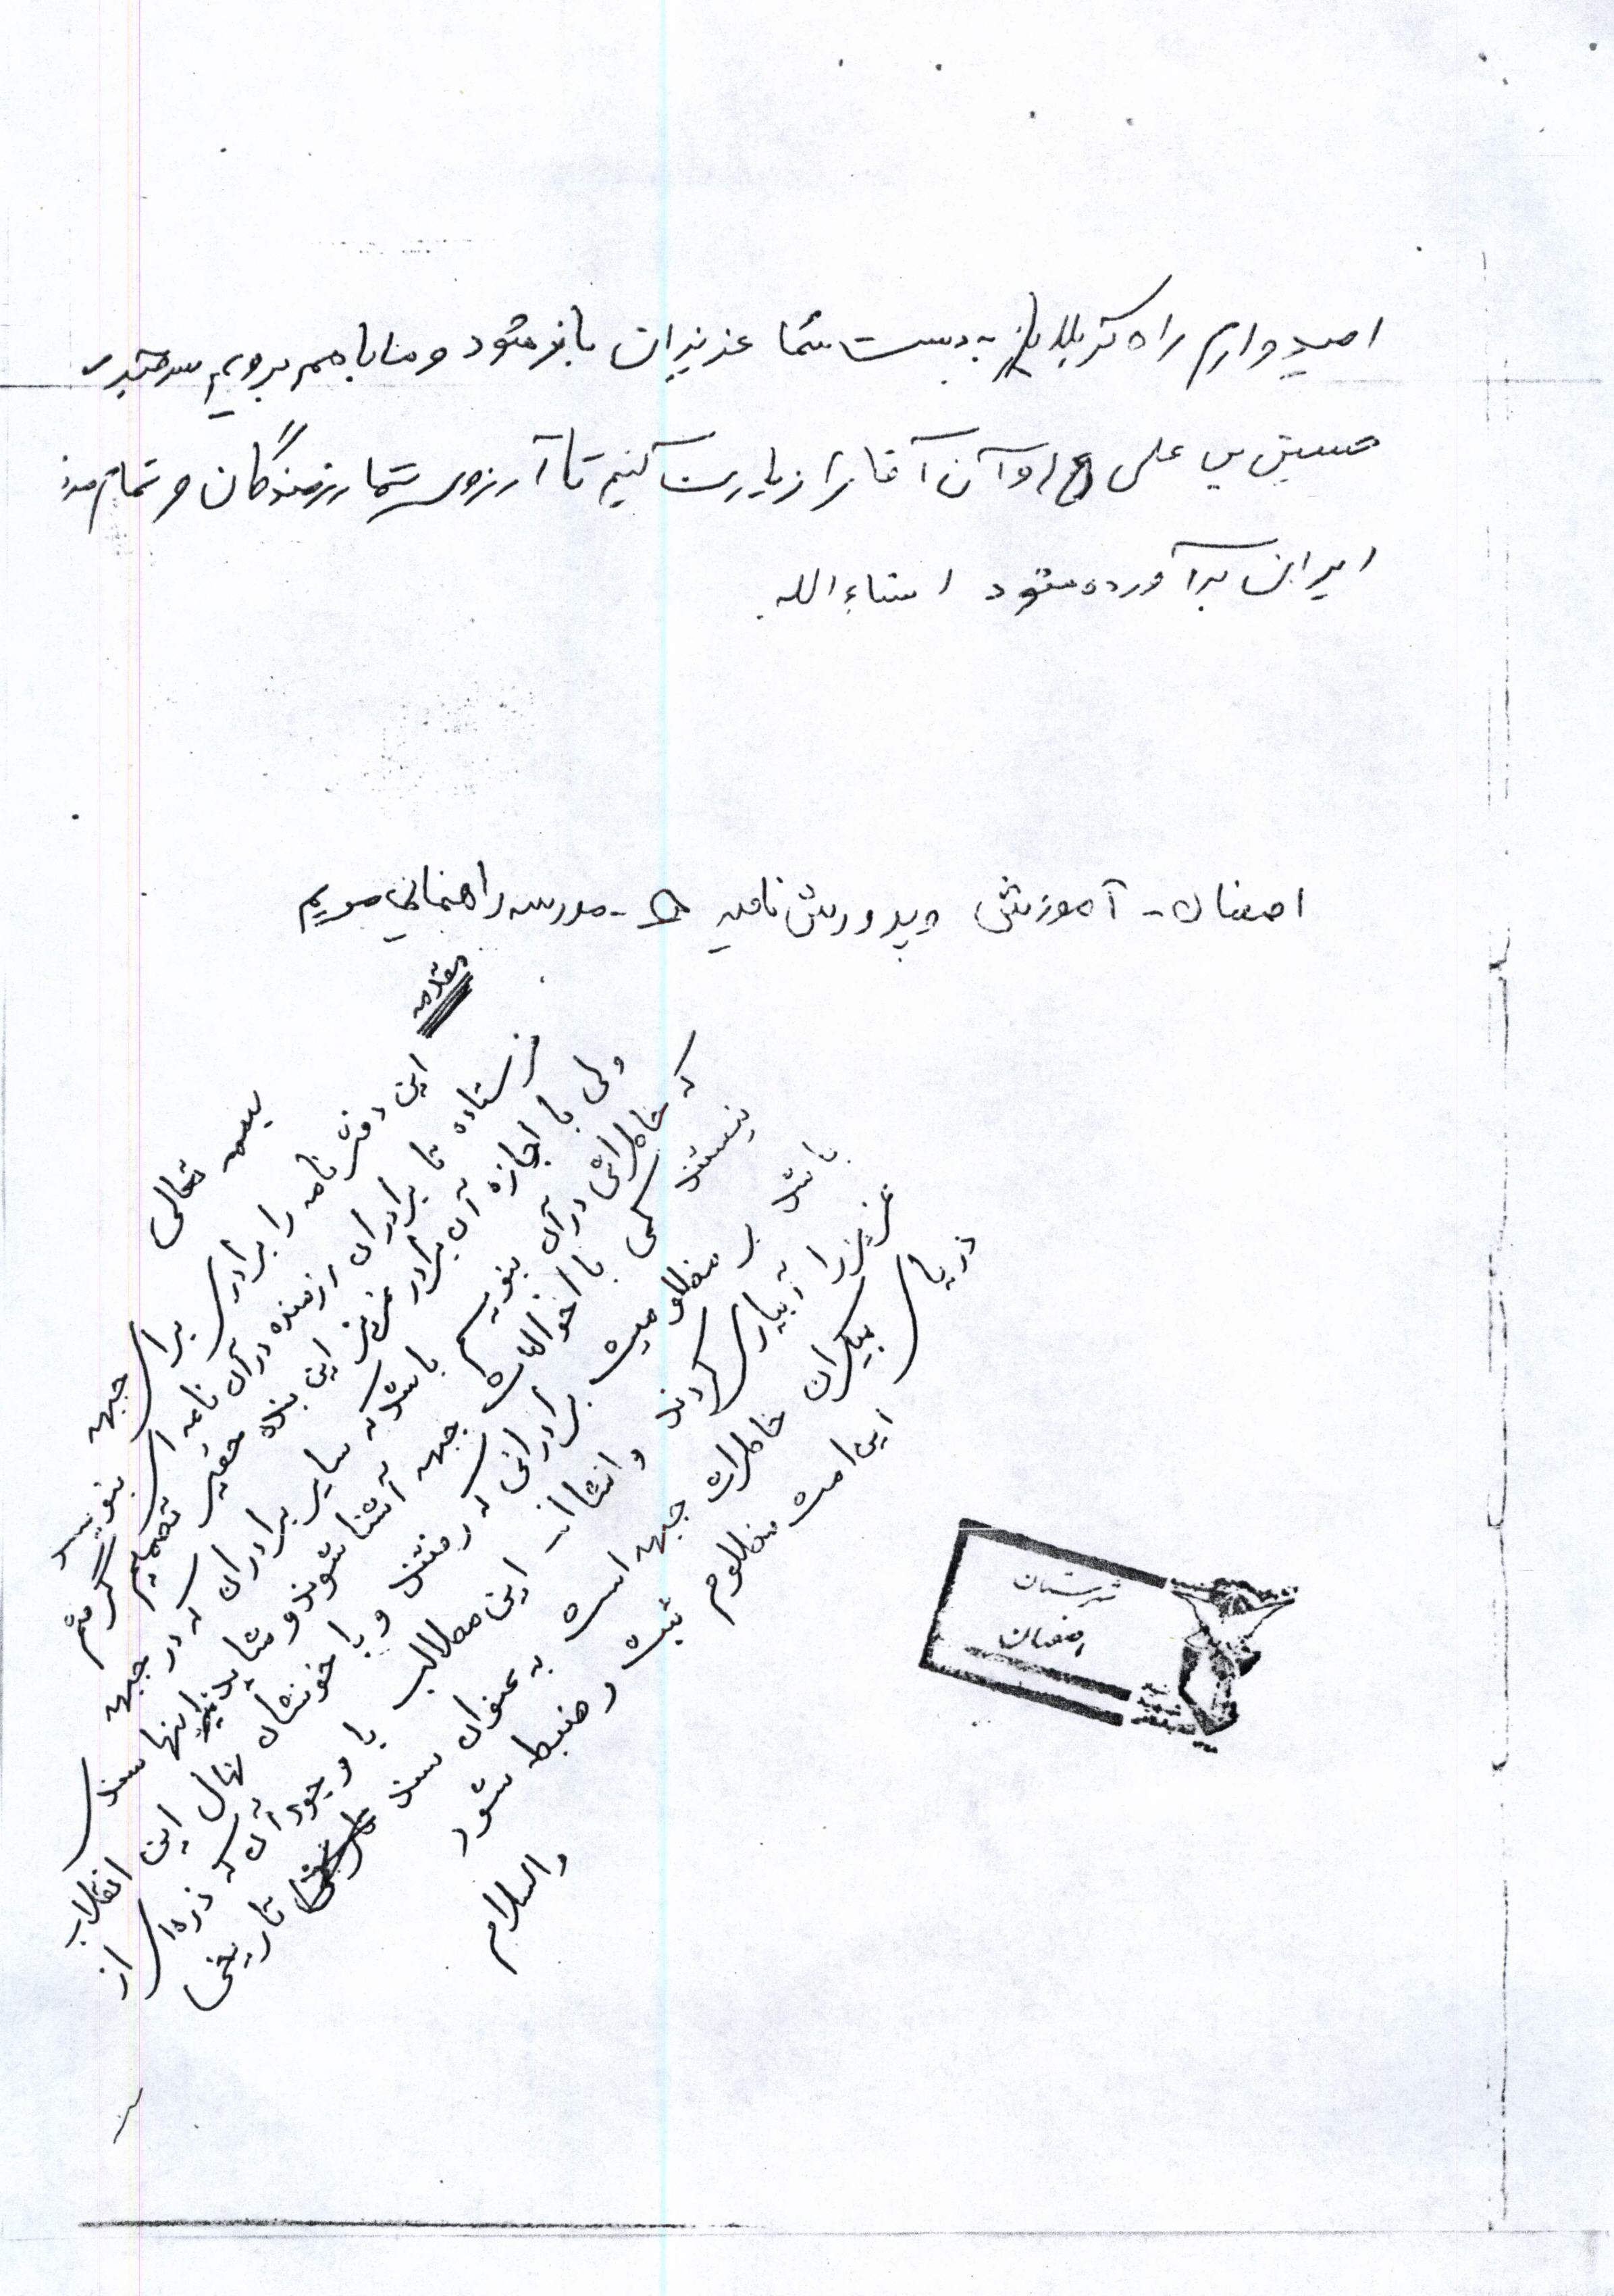 امیدوارم راه کربلا به دست شما عزیزان باز شود و ما با هم برویم سر قبر
حسین بن علی (ع) و آن آقا را زیارت کنیم تا آرزوی شما رزمندگان و تمام مردم
ایران برآورده شود انشاءالله.
اصفهان - آموزش و پرورش ناحیه ۵ - مدرسه راهنمائی مریم
بسمه تعالی
مقدمه
این دفتر نامه را برادری برای جبهه
فرستاده تا برادران رزمنده در آن نامه ای بنویسند
ولی با اجازه آن برادر عزیز این بنده حقیر تصمیم گرفتم
که خاطراتی در آن بنویسم باشد که سایر برادران که در جبهه
نیستند کمی با احوالات جبهه آشنا شوند و شاید اینها سندی
باشد بر مظلومیت برادرانی که رفتند و با خونشان نهال این انقلاب
عزیز را آبیاری کردند و انشاا... این مطالب با وجود آن که ذره ای از
دریای بیکران خاطرات جبهه است به عنوان سند تاریخی
این امت مظلوم ثبت و ضبط شود
والسلام
شهرستان
اصفهان